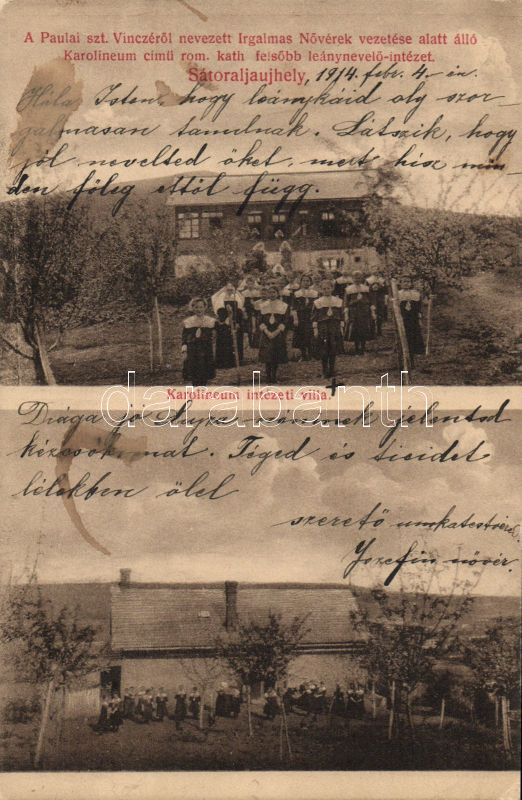 A Paulai szt. Vinczéről nevezett Irgalmas Nővérek vezetése alatt álló
Karolineum cimü rom. kath felsőbb leánynevelő-intézet.
Sátoraljaujhely, 1914. febr. 4-én.
Hála Isten, hogy leánykáid oly szor-
galmasan tanulnak. Látszik, hogy
jól nevelted őket, mert hisz min
den főleg ettől függ.
Karolineum intézeti villa.
darabanth
Drága jó nek jelentsd
kézcsókomat. Téged és tieidet
lélekben ölel
szerető unokatestvére
Jozefin nővér.